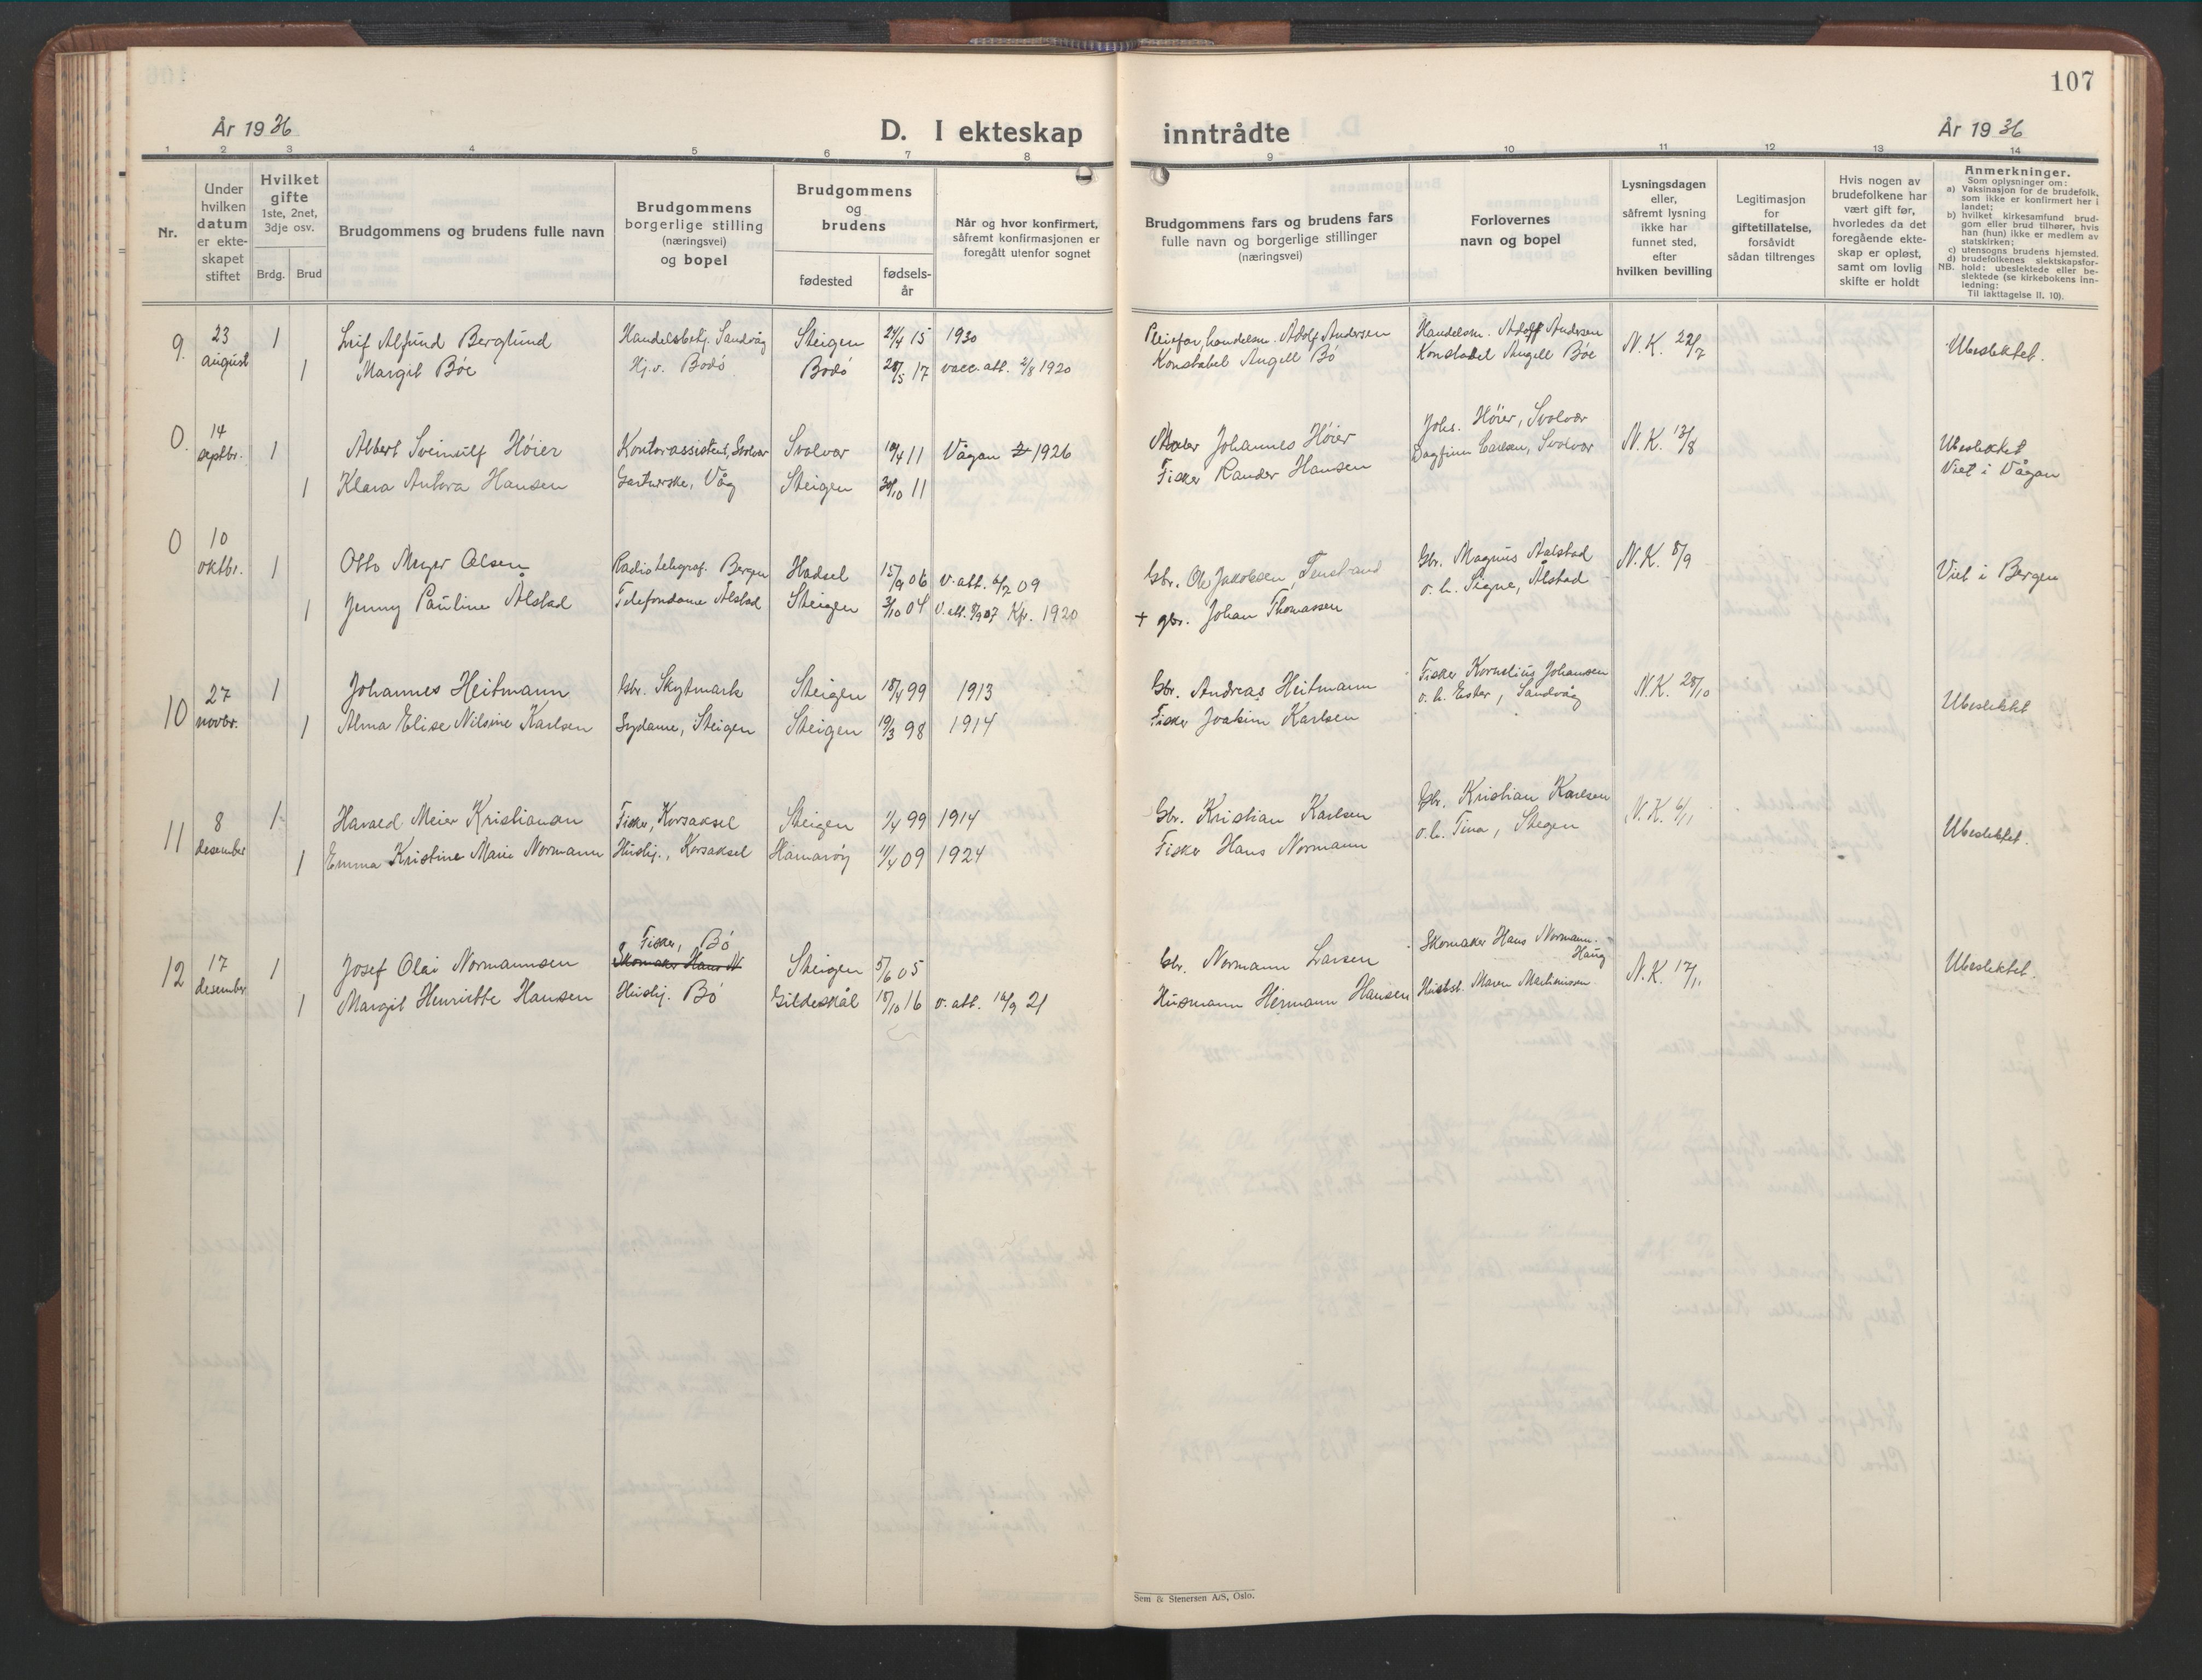 107
År 1936
D. I ekteskap inntrådte
År 1936
1 2 3 4 5 6 7 8 9 10 11 12 13 14
Nr.
Under
hvilken
datum
er ekte-
skapet
stiftet
Hvilket
gifte
1ste, 2net,
3dje osv.
Brdg. Brud
Brudgommens og brudens fulle navn
Brudgommens
borgerlige stilling
(næringsvei)
og bopel
Brudgommens
og
brudens
fødested
fødsels-
år
Når og hvor konfirmert,
såfremt konfirmasjonen er
foregått utenfor sognet
Brudgommens fars og brudens fars
fulle navn og borgerlige stillinger
(næringsvei)
Forlovernes
navn og bopel
Lysningsdagen
eller,
såfremt lysning
ikke har
funnet sted,
efter
hvilken bevilling
Legitimasjon
for
giftetillatelse,
forsåvidt
sådan tiltrenges
Hvis nogen av
brudefolkene har
vært gift før,
hvorledes da det
foregående ekte-
skap er opløst,
samt om lovlig
skifte er holdt
Anmerkninger.
Som oplysninger om:
a) Vaksinasjon for de brudefolk,
som ikke er konfirmert her i
landet;
b) hvilket kirkesamfund brud-
gom eller brud tilhører, hvis
han (hun) ikke er medlem av
statskirken;
c) utensogns brudens hjemsted.
d) brudefolkenes slektskapsfor-
NB. hold: ubeslektede eller be-
slektede (se kirkebokens inn-
ledning:
Til iakttagelse II. 10).
9. 23 august 1 Leif Alfund Berglund Handelsbetj. Sandvåg Steigen 24/4 15 1930 Pleiefar, handelsm. Adolf Andersen Handelsm. Adolf Andersen N.K. 22/7 Ubeslektet.
1 Margit Böe Hj.v. Bodö Bodö 28/5 17 vacc. att. 2/8 1920 Konstabel Angell Bö Konstabel Angell Böe
0. 14 septbr. 1 Albert Sveinulf Höier Kontorassistent, Svolvær Svolvær 19/4 11 Vågan 1926 Maler Johannes Höier Johs. Höier, Svolvær N.K. 13/8 Ubeslektet
1 Klara Antora Hansen Gartnerske, Våg Steigen 30/10 11 Fisker Rander Hansen Dagfinn Carlsen, Svolvær Viet i Vågan
0 10 oktbr. 1 Otto Meyer Olsen Radiotelegraf. Bergen Hadsel 15/9 06 v. att. 6/7 09 Gbr. Ole Jakobsen, Gbr. Magnus Aalstad N.K. 8/9 Viet i Bergen
1 Jenny Pauline Ålstad Telefondame Ålstad Steigen 3/10 04 V. att. 8/9 07 Kfr. 1920 + gbr. Johan Thomassen o. h. Signe, Ålstad
10 27 novbr. 1 Johannes Heitmann Gbr. Skytmark Steigen 18/4 99 1913 Gbr. Andreas Heitmann Fisker Kornelius Johansen N.K. 28/10 Ubeslektet
1 Alma Elise Nilsine Karlsen Sydame, Steigen Steigen 19/3 98 1914 Fisker Joakim Karlsen o. h. Ester, Sandvåg
11 8 desember 1 Harald Meier Kristiansen Fisker, Korsaksel Steigen 1/4 99 1914 Gbr. Kristian Karlsen Gbr. Kristian Karlsen N.K. 6/11 Ubeslektet.
1 Emma Kristine Marie Normann Huslij., Korsaksel Hamaröy 11/4 09 1924 Fisker Hans Normann o. h. Tina, Stegen
12 17 desember 1 Josef Olai Normannsen Fisker, Bö Skomaker Hans N Steigen 5/6 05 Gbr. Normann Larsen Skomaker Hans Normann. Haug N.K. 17/11 Ubeslektet.
1 Margit Henriette Hansen Huslij. Bö Gildeskål 18/10 16 v. att. 16/9 21 Husmann Hermann Hansen Husbst. Maren Martinussen
Sem & Stenersen A/S, Oslo.